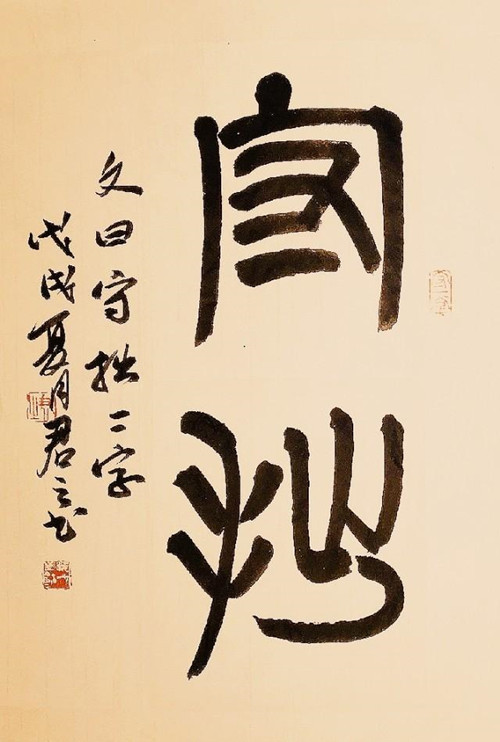 守拙
文曰守拙二字
戊戌夏月君之书